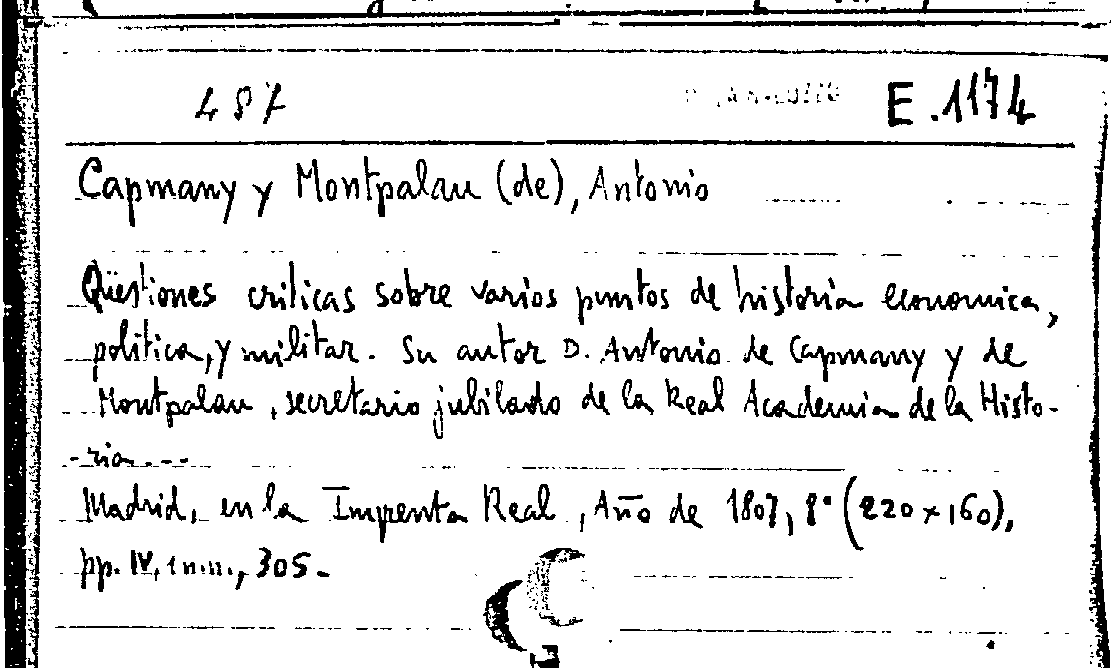 487
E.1174
Capmany y Montpalau (de), Antonio
Qüestiones criticas sobre varios puntos de historia economica,
politica, y militar. Su autor D. Antonio de Capmany y de
Montpalau, secretario jubilado de la Real Academia de la Histo-
-ria...--
Madrid, en la Imprenta Real, Año de 1807, 8° (220 x 160),
pp. IV, 1 n.n., 305.